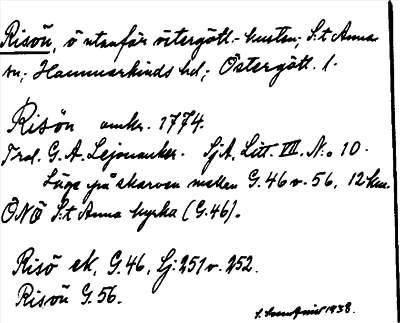 Risön, ö utanför östergötl.-kusten; S:t Anna
sn; Hammarkinds hd; Östergötl. l.
Risön omkr. 1774.
Trol. G. A. Lejonanker. SjA, Litt. VII. No 10.
Läge på skarven mellan G. 46 v. 56, 12 km.
ÖNÖ S:t Anna kyrka (G. 46).
Risö ek, G. 46, Lj: 251 v. 252.
Risön G. 56.
1938.